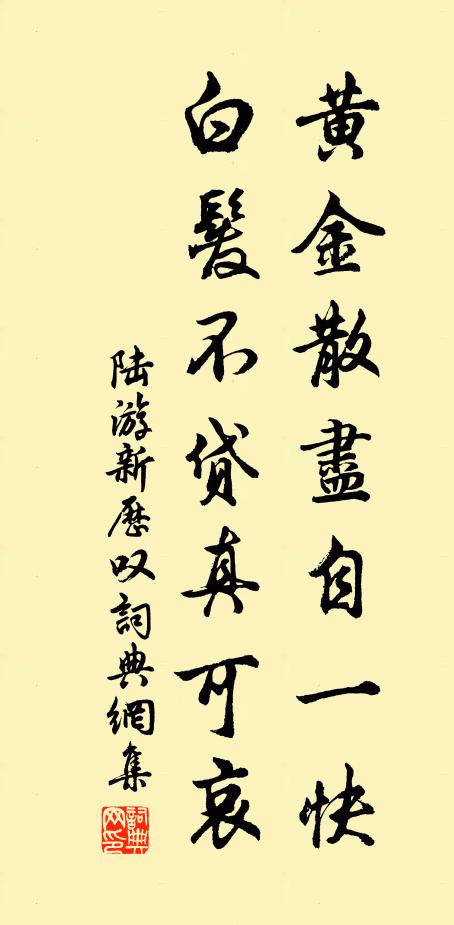 黃金散盡自一快
白髮不貸真可哀
陆游新歷叹詞典網集
詞典網印